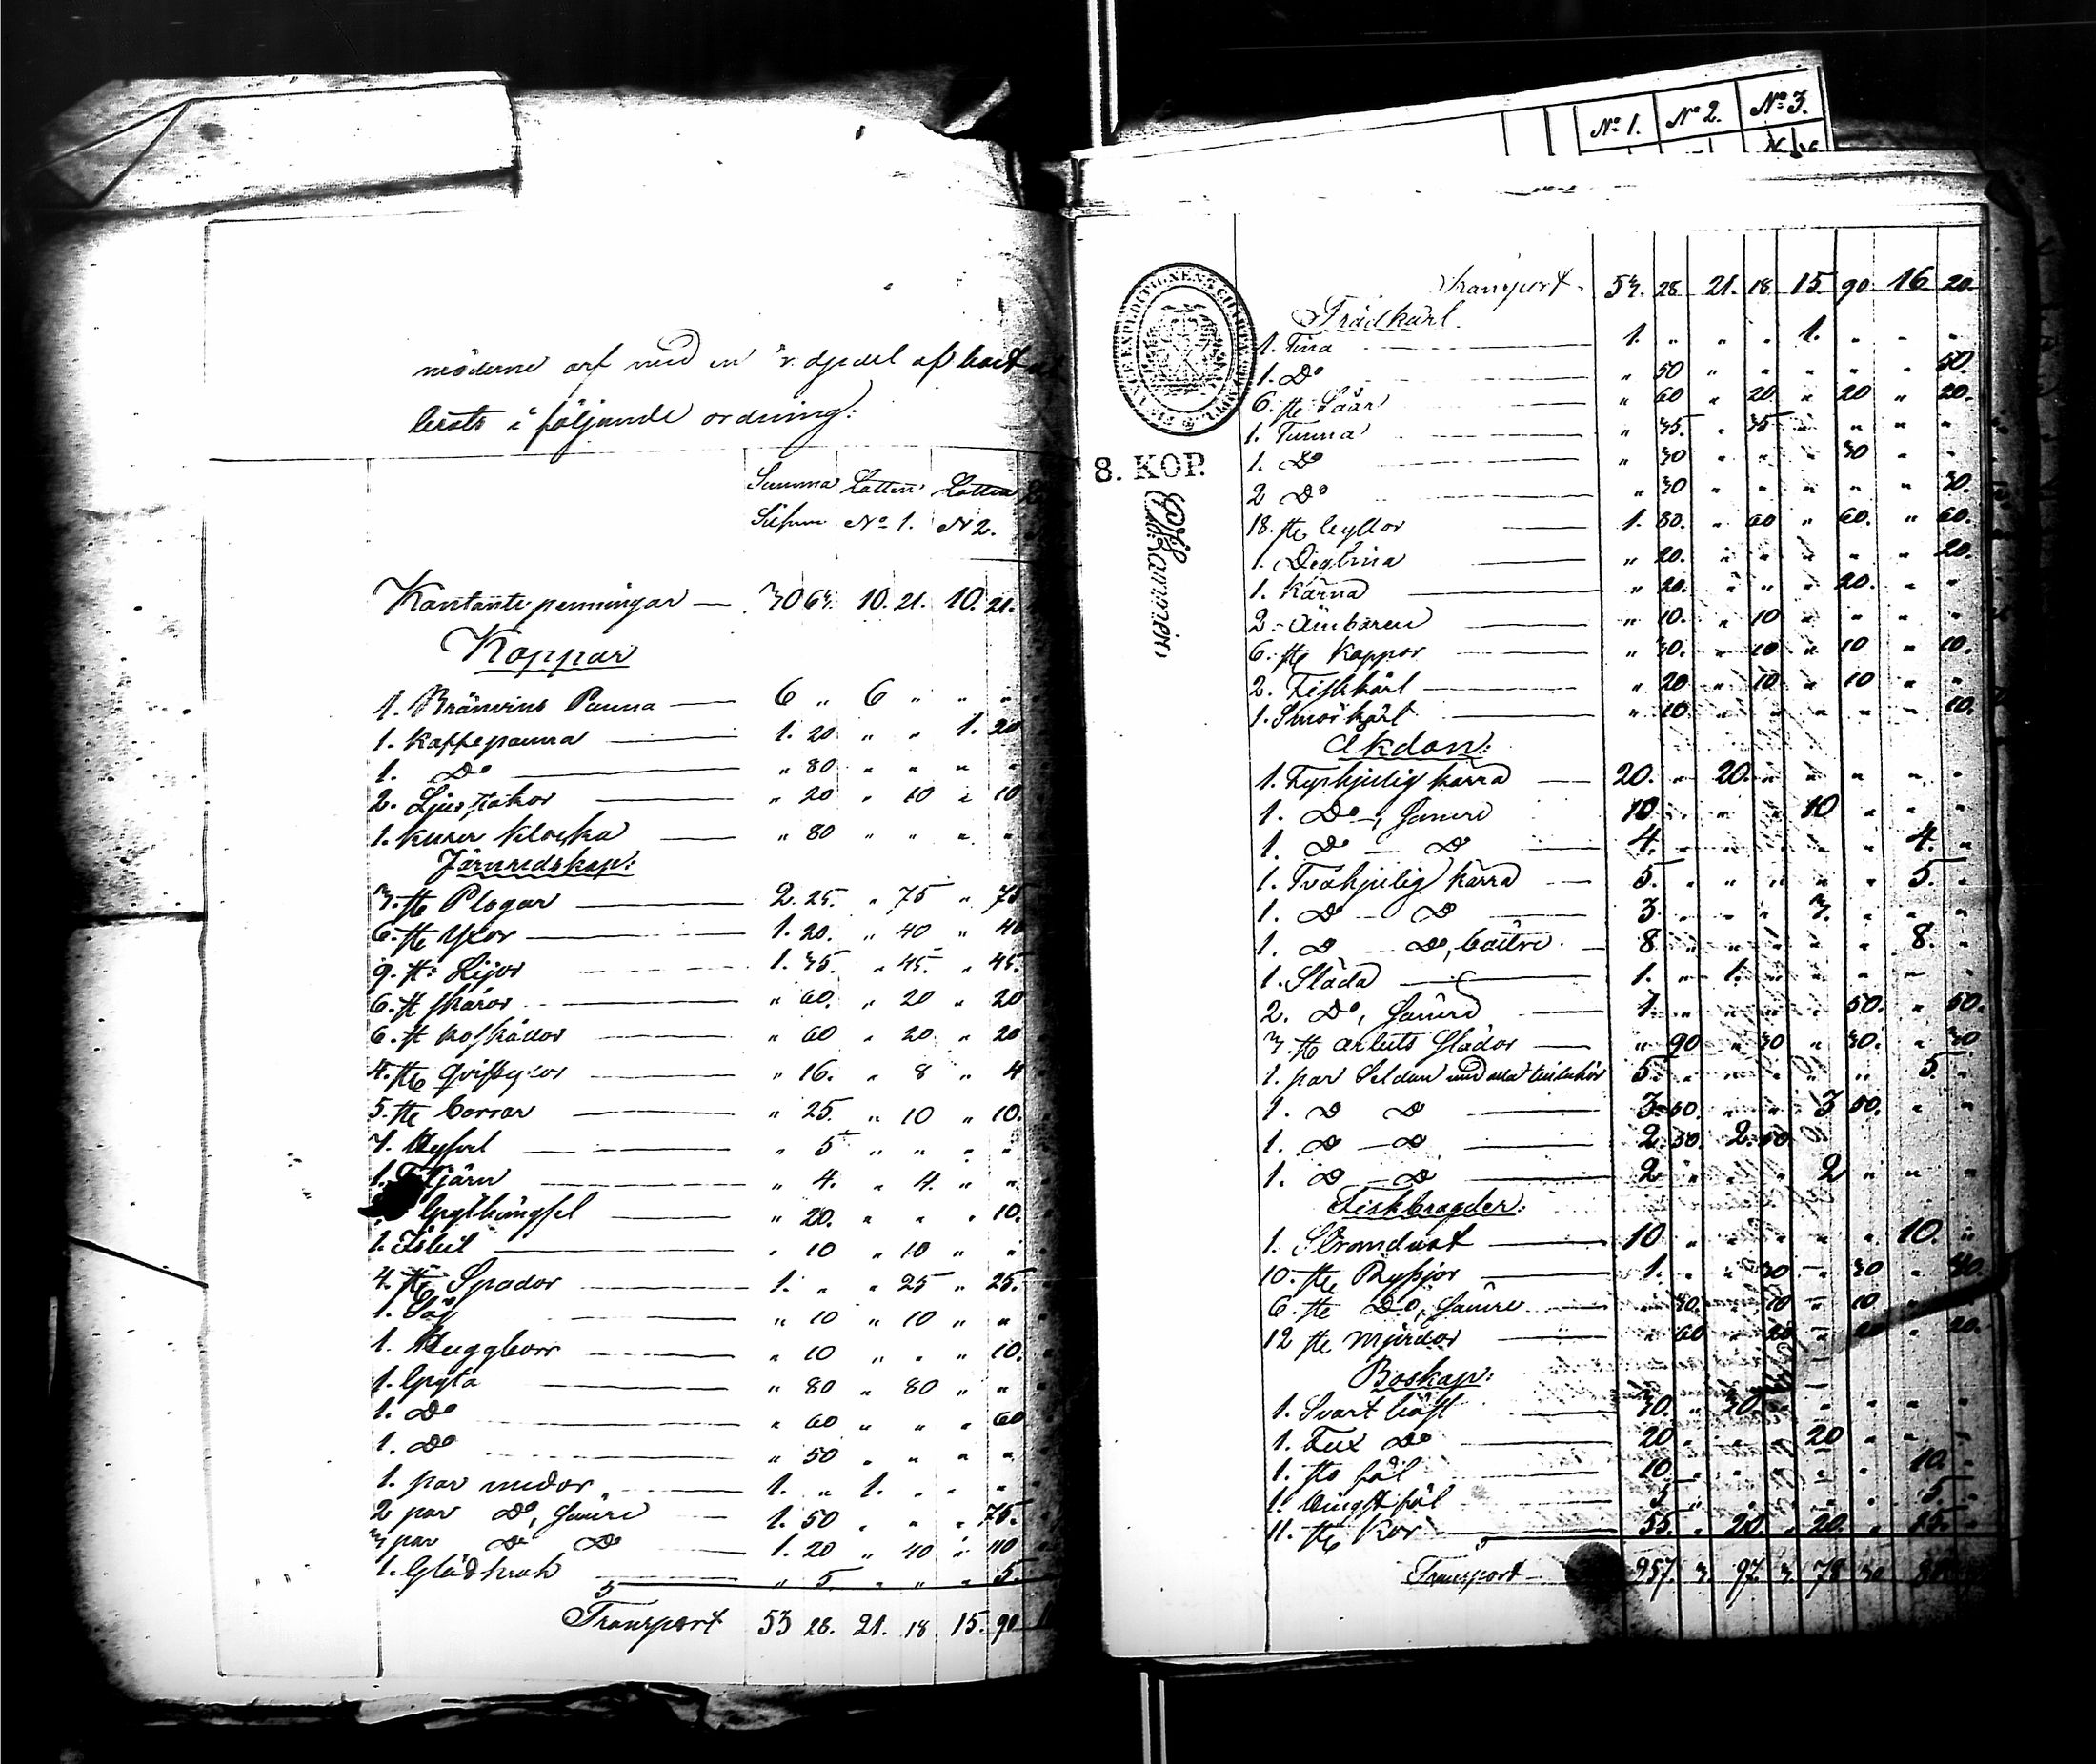 möderne arf med en 3:djedel af boet
beräts i följande ordning:
Summa Lotten Lotten
Silfver No 1. N 2.
Kontante penningar — 30 64. 10. 21. 10. 21.
Koppar
1. Bränvins Panna — 6 „ 6 „ „ „
1. Kaffepanna — 1. 20 „ „ 1. 20
1. Do — „ 80 „ „ „ „
2. Ljusstakor — „ 20 „ 10 „ 10
1. Kurer klocka — „ 80 „ „ „ „
Järnredskap:
3. st Plogar — 2. 25. „ 75 „ 75
6. st Yxor — 1. 20. „ 40 „ 40
9. st: Lijor — 1. 35. „ 45. „ 45.
6. st skäror — „ 60. „ 20 „ 20
6. st — „ 60 „ 20 „ 20
4. st qvistyxor — „ 16. „ 8 „ 4
5. st borrar — „ 25. „ 10 „ 10.
1. Hyfvel — „ 5 „ „ „ „
1. — „ 4. „ 4. „ „
Grythängsel — „ 20. „ „ „ 10.
1. Isbil — „ 10 „ 10 „ „
4. st Spador — 1. „ „ 25 „ 25.
1. Såg — „ 10 „ 10 „ „
1. Huggborr — „ 10 „ „ „ 10.
1. Gryta — „ 80 „ 80 „ „
1. Do — „ 60 „ „ „ 60
1. Do — „ 50 „ „ „ „
1. par medor — 1. „ 1. „ „ „
2 par Do, sämre — 1. 50 „ „ „ 75.
3 par Do Do — 1. 20 „ 40 „ 40
1. Glödkrok — „ 5 „ „ „ 5.
Transport 53 28. 21. 18 15. 90
No 1. No 2. No 3.
8. KOP.
Transport. 53. 28 21. 18 15 90 16 20.
Trädkärl.
1. Tina — 1. „ „ „ 1. „ „ „
1. Do — „ 50 „ „ „ „ „ 50.
6. st Såar — „ 60 „ 20 „ 20 „ 20.
1. Tunna — „ 35. „ 35 „ „ „ „
1. Do — „ 30 „ „ „ 30 „ „
2 Do — „ 30 „ „ „ „ „ 30.
18. st byttor — 1. 80. „ 60 „ 60. „ 60.
1. Degtina — „ 20. „ „ „ „ „ 20.
1. Kärna — „ 20. „ „ „ 20. „ „
2. Ämbaren — „ 10. „ 10 „ „ „ „
6. st Koppor — „ 30. „ 10 „ 10 „ 10.
2. Fiskkärl — „ 20 „ 10 „ 10 „ „
1. Smörkärl — „ 10. „ „ „ „ „ 10.
Åkdon:
1. Fyrhjulig kärra — 20. „ 20. „ „ „ „ „
1. Do, sämre 10. „ „ „ 10 „ „ „
1. Do — Do — 4. „ „ „ „ „ 4. „
1. Tvåhjulig kärra — 5. „ „ „ „ „ 5. „
1. Do — Do — 3 „ „ „ 3. „ „ „
1. Do — Do, bättre. — 8 „ „ „ „ „ 8. „
1. Släda — 1. „ 1. „ „ „ „ „
2. Do, sämre — 1. „ „ „ „ 50. „ 50.
3. st arbets slädor — „ 90 „ 30 „ 30. „ 30
1. par Seldon med alla tillbehör 5. „ „ „ „ „ 5. „
1. Do Do — 3. 50. „ „ 3 50. „ „
1. Do — Do — 2. 50 2. 50 „ „ „ „
1. Do — Do — 2 „ „ „ 2 „ „ „
Fiskbragder:
1. Strandnot — 10 „ „ „ „ „ 10. „
10. st Ryssjor — 1. „ „ 30 „ 30 „ 40.
6. st Do, sämre — „ 30. „ 10 „ 10 „
12 st Mjärdor — „ 60 „ 20 „ 20 „ 20.
Boskap:
1. Svart häst — 30. „ 30. „ „ „ „ „
1. Fux Do — 20 „ „ „ 20 „ „ „
1. sto föl — 10 „ „ „ „ „ 10. „
1. föl — 5 „ „ „ „ „ 5. „
11. st Kor — 55. „ 20 „ 20. „ 15. „
Transport — 257. 3. 97. 3. 78 30